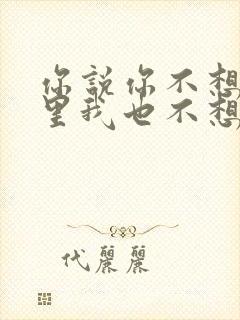 你說你不想
里我也不想
代麗麗